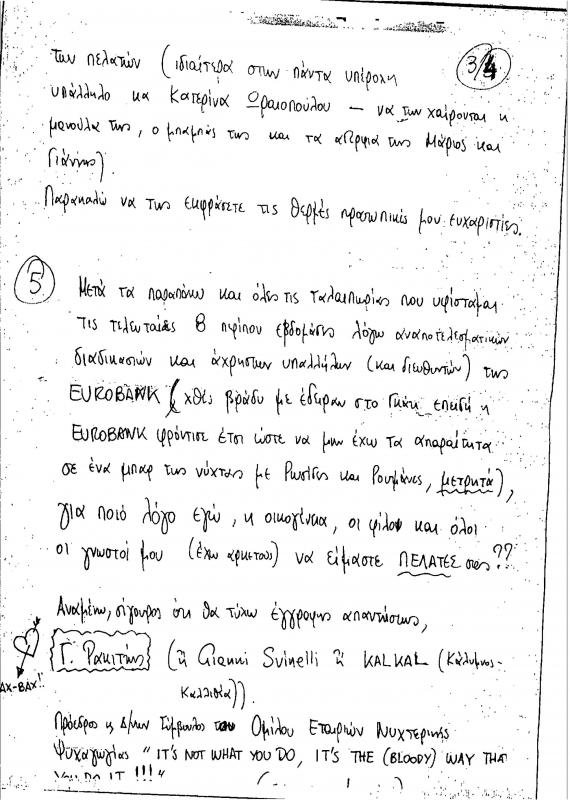 3/4
των πελατών (ιδιαίτερα στην πάντα υπέροχη
υπάλληλο κα Κατερίνα Ωραιοπούλου — να την χαίρονται η
μανούλα της, ο μπαμπάς της και τα αδέρφια της Μάριος και
Γιάννης).
Παρακαλώ να της εκφράσετε τις θερμές προσωπικές μου ευχαριστίες.
5 Μετά τα παραπάνω και όλες τις ταλαιπωρίες που υφίσταμαι
τις τελευταίες 8 περίπου εβδομάδες λόγω αναποτελεσματικών
διαδικασιών και άχρηστων υπαλλήλων (και διευθυντών) της
EUROBANK (χθες βράδυ με έδειραν στο Γκάζι επειδή η
EUROBANK φρόντισε έτσι ώστε να μην έχω τα απαραίτητα
σε ένα μπαρ της νύχτας με Ρωσίδες και Ρουμάνες, μετρητά),
για ποιό λόγο εγώ, η οικογένεια, οι φίλοι και όλοι
οι γνωστοί μου (έχω αρκετούς) να είμαστε ΠΕΛΑΤΕΣ σας??
Αναμένω, σίγουρος ότι θα τύχω έγγραφης απαντήσεως,
Γ. Ρακιτζής (ή Gianni Svinelli ή KALKAL (Κάλυμνος-
Καλλιθέα)).
ΑΧ-ΒΑΧ!!
Πρόεδρος & Δ/νων Σύμβουλος του Ομίλου Εταιριών Νυχτερινής
Ψυχαγωγίας "IT'S NOT WHAT YOU DO, IT'S THE (BLOODY) WAY THA
YOU DO IT !!!"